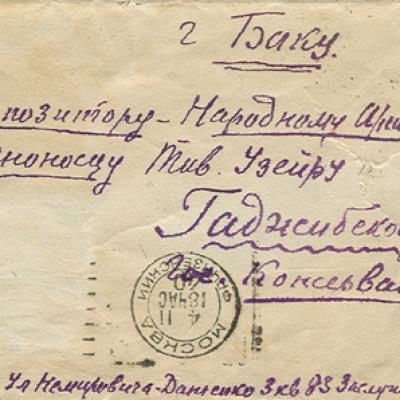 г Баку.
позитору - Народному Арти
еноносцу Тов. Узейру
Гаджибеко
Гос. Консерва
МОСКВА
4 11
18 ЧАС
40
Ул Немировича-Данченко 3 кв 83 Заслу